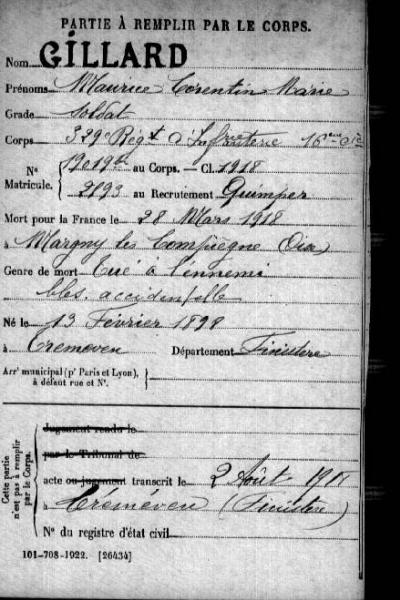 PARTIE À REMPLIR PAR LE CORPS.
Nom GILLARD
Prénoms Maurice Corentin Marie
Grade Soldat
Corps 329e Régt d'Infanterie 16eme Cie
Nº Matricule. 12019bis au Corps. — Cl. 1918
2893 au Recrutement Quimper
Mort pour la France le 28 Mars 1918
à Margny les Compiègne (Oise)
Genre de mort Tué à l'ennemi
bles. accidentelle
Né le 13 Février 1898
à Tréméven Département Finistère
Arrt municipal (pr Paris et Lyon), à défaut rue et Nº.
Cette partie n'est pas à remplir par le Corps.
Jugement rendu le
par le Tribunal de
acte ou jugement transcrit le 2 Août 1918
à Tréméven (Finistère)
Nº du registre d'état civil
101-708-1922. [26434]